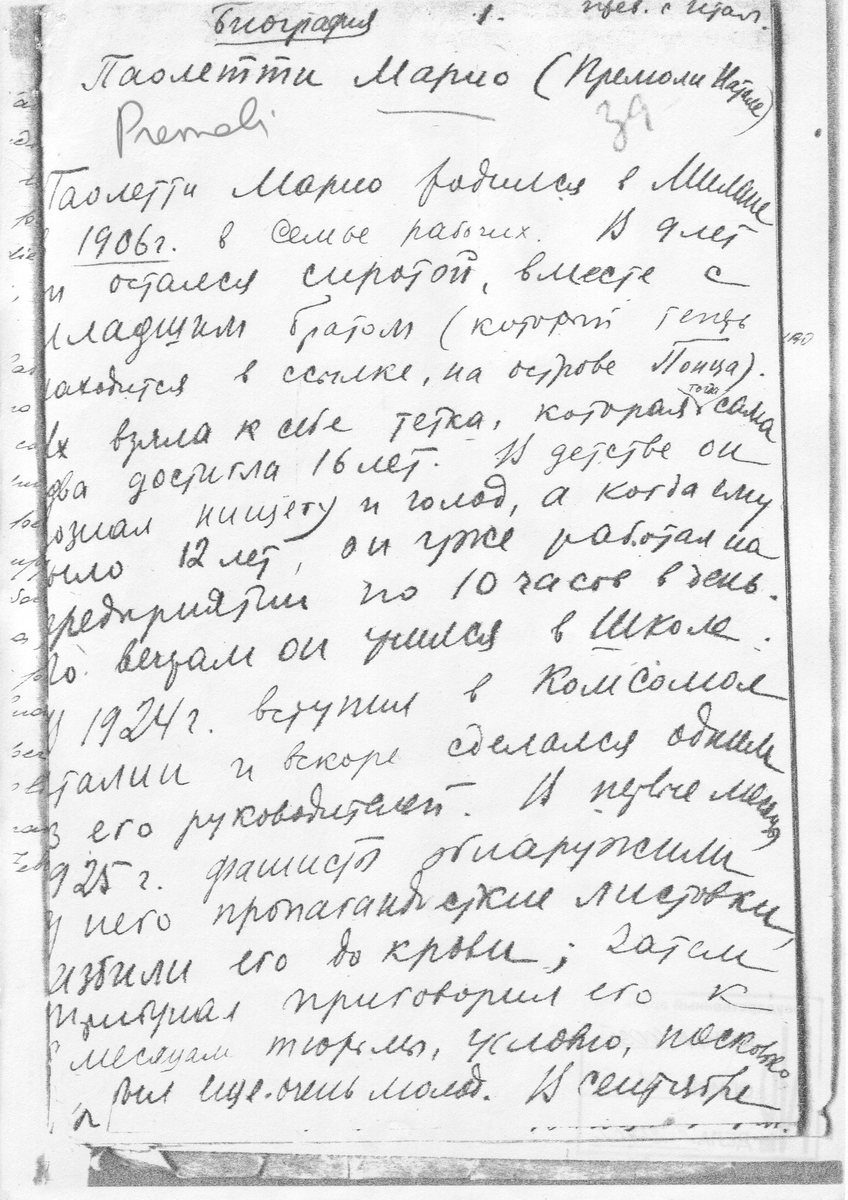 Биография 1. перев. с итал.
Паолетти Марио (Премоли Натале)
Premoli 39
Паолетти Марио родился в Милане
1906г. в семье рабочих. В 9 лет
остался сиротой, вместе с
младшим братом (который теперь
находится в ссылке, на острове Понца).
Их взяла к себе тетка, которая тогда сама
два достигла 16 лет. В детстве он
познал нищету и голод, а когда ему
было 12 лет, он уже работал на
предприятии по 10 часов в день.
По вечерам он учился в школе.
В 1924г. вступил в Комсомол
талии и вскоре сделался одним
з его руководителей. В первые месяцы
925 г. фашисты обнаружили
у него пропагандистские листовки,
избили его до крови; затем
трибунал приговорил его к
месяцам тюрьмы, условно, поскольку
был еще очень молод. В сентябре